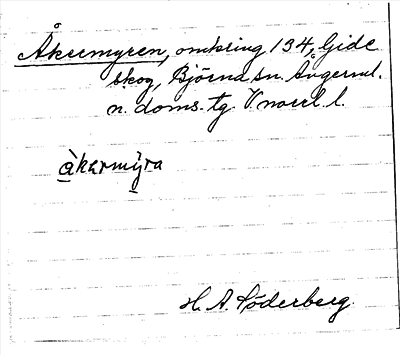 Åkermyren, omkring 134, Gide
skog, Björna sn. Ångerml.
n. doms. tg. Vnorrl. l.
åkermyra
H. A. Söderberg.